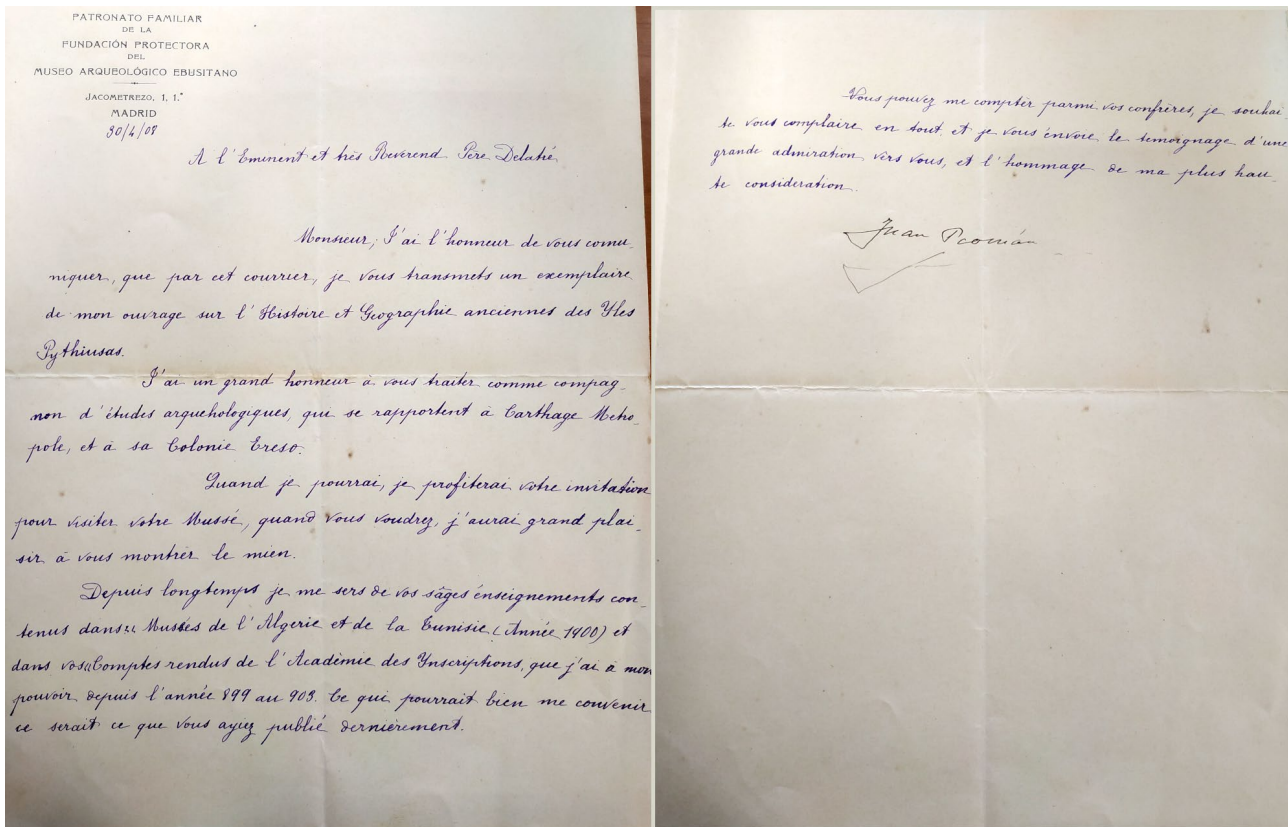 PATRONATO FAMILIAR
DE LA
FUNDACIÓN PROTECTORA
DEL
MUSEO ARQUEOLÓGICO EBUSITANO
JACOMETREZO, 1, 1.°
MADRID
30/4/08
A l'Eminent et très Reverend Père Delatié
Monsieur; J'ai l'honneur de vous comu-
niquer, que par cet courrier, je vous transmets un exemplaire
de mon ouvrage sur l'Histoire et Geographie anciennes des Yles
Pythiusas.
J'ai un grand honneur à vous traiter comme compag-
non d'études arquehologiques, qui se rapportent à Carthage Metro-
pole, et à sa Colonie Ereso.
Quand je pourrai, je profiterai votre invitation
pour visiter votre Mussé, quand vous voudrez, j'aurai grand plai-
sir à vous montrer le mien.
Depuis longtemps je me sers de vos sâges énseignements con-
tenus dans "Musées de l'Algerie et de la Tunisie (Année 1900) et
dans vos "Comptes rendus de l'Acadèmie des Ynscriptions, que j'ai à mon
pouvoir depuis l'année 899 au 903. Ce qui pourrait bien me convenir
ce serait ce que vous ayiez publié dernièrement.
Vous pouvez me compter parmi vos confrères, je souhai-
te vous complaire en tout et je vous envoie le temoignage d'une
grande admiration vers vous, et l'hommage de ma plus hau-
te consideration.
Juan Román